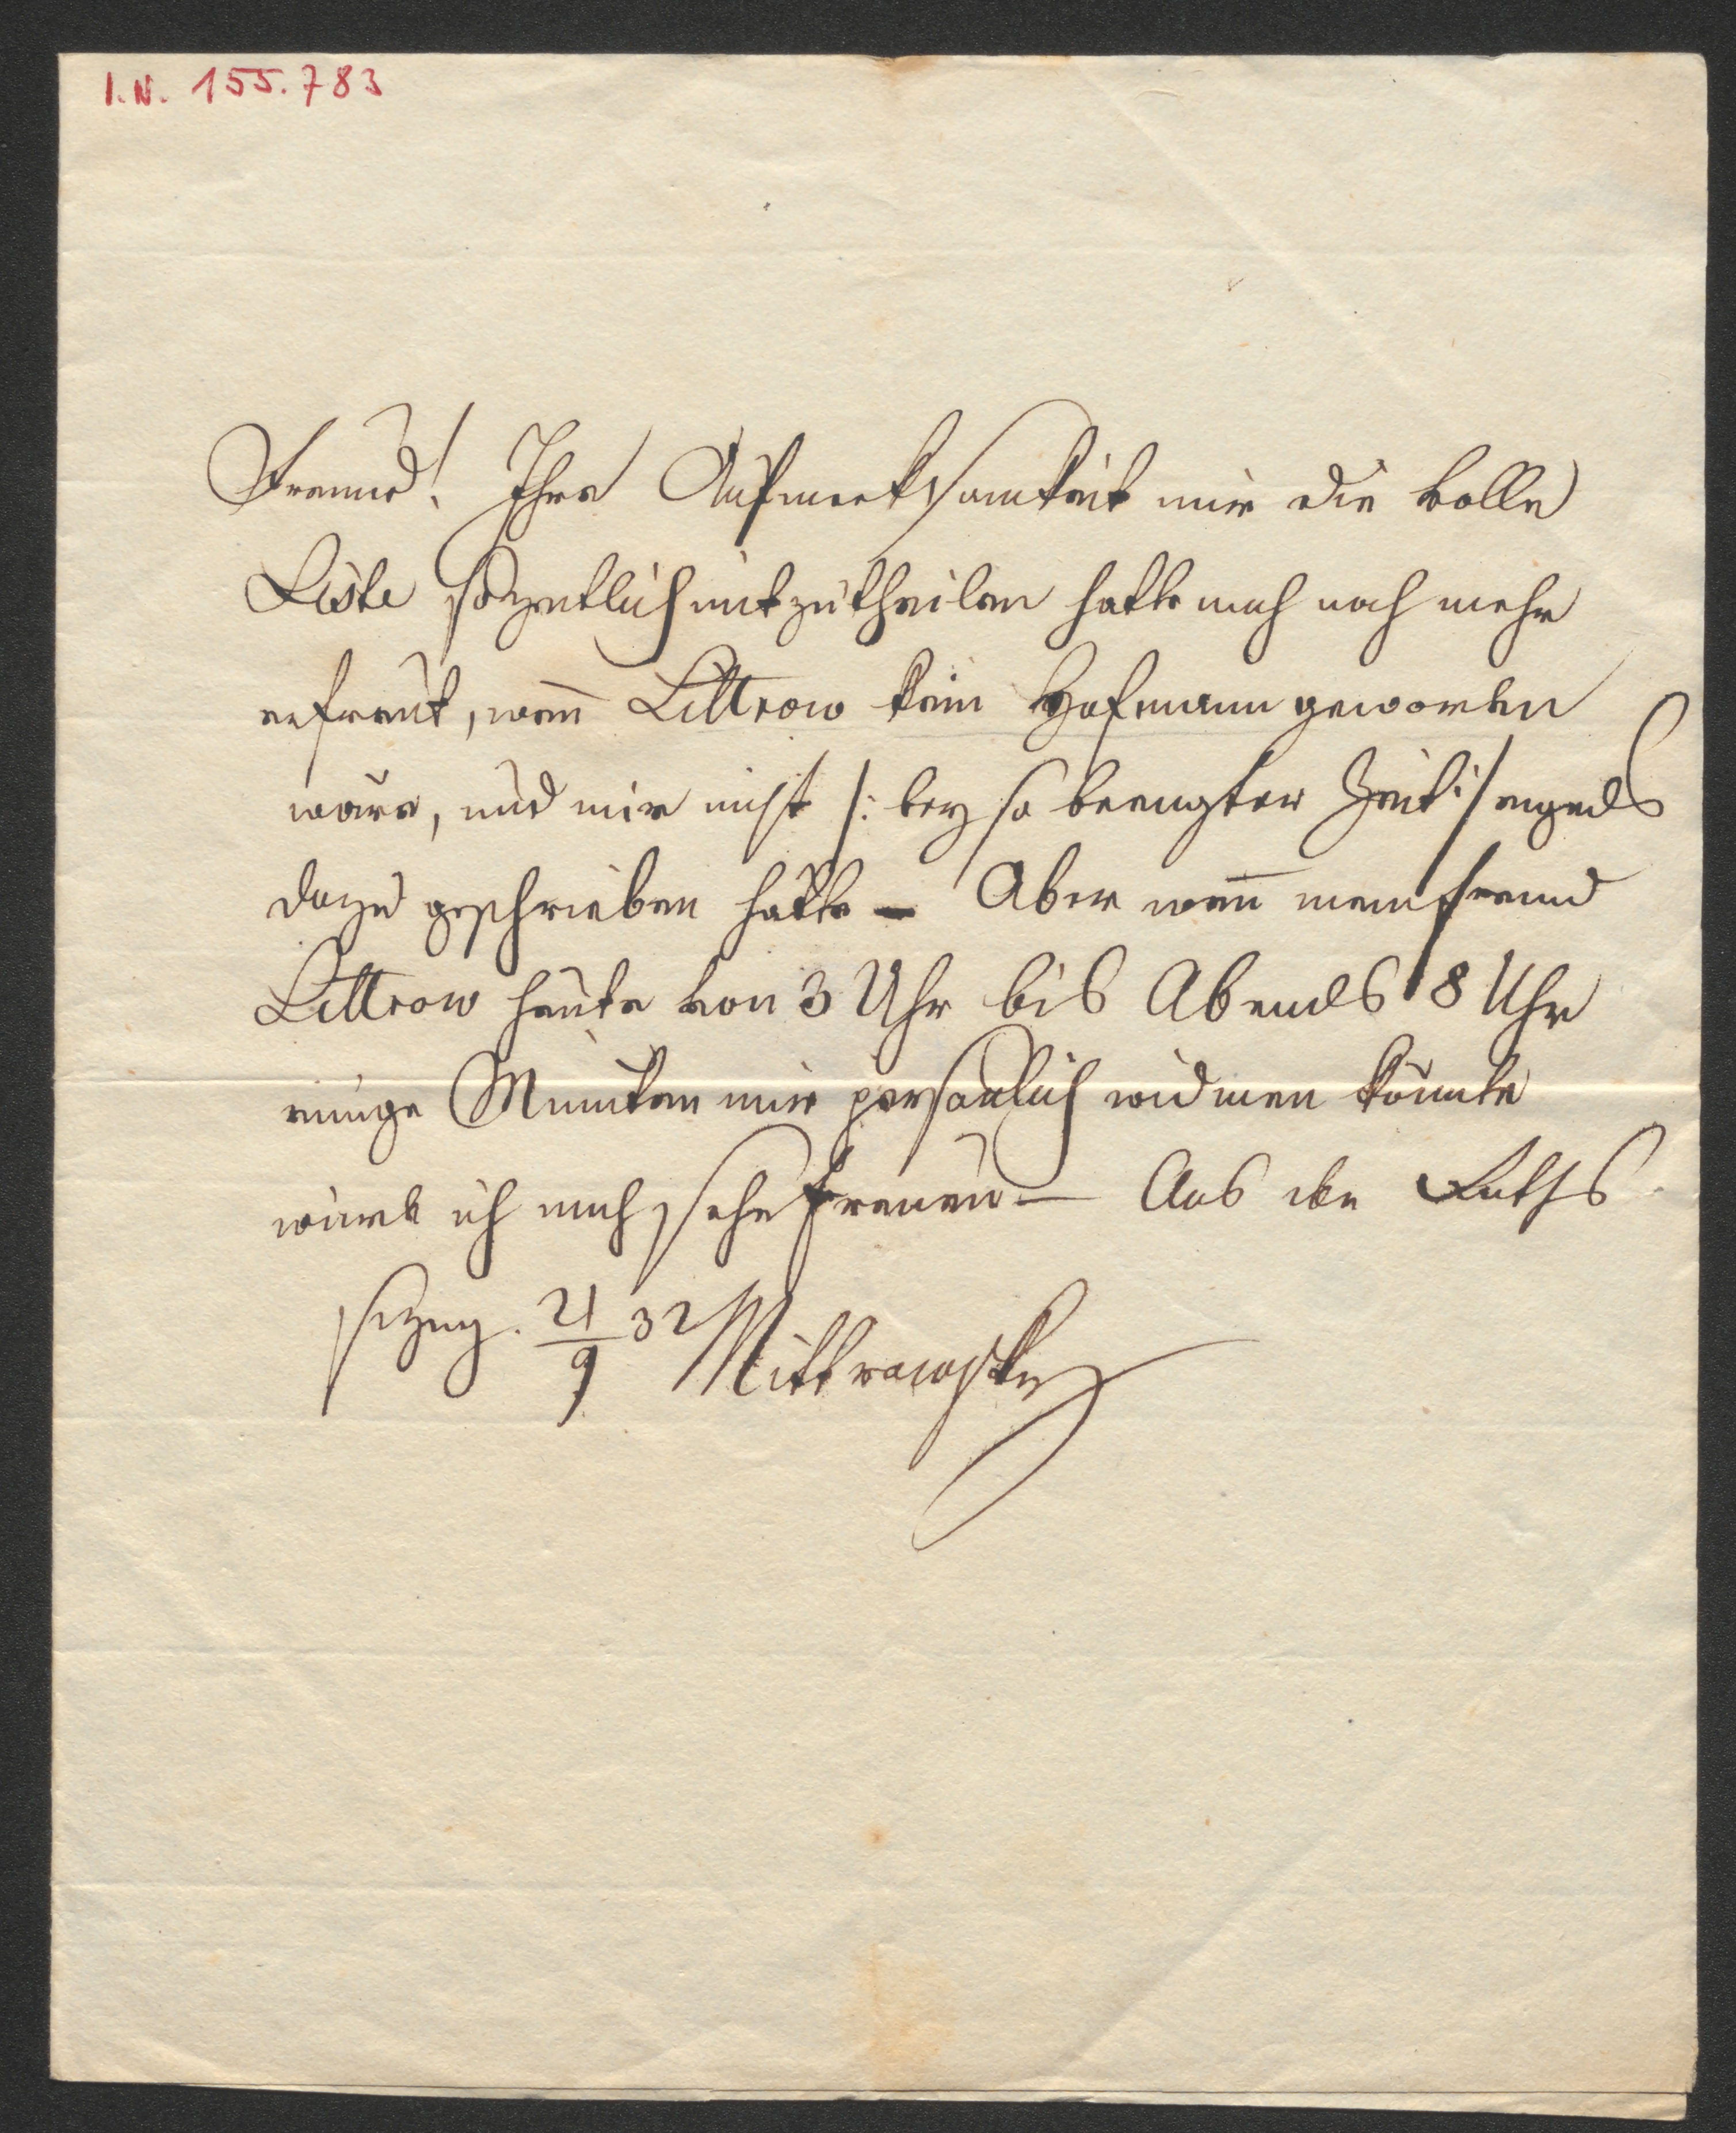 I.N. 155.783
Freund! Ihre Aufmerksamkeit mir die volle
Liste so zeitlich mitzutheilen hätte mich noch mehr
erfreut, weñ Littrow kein Hofmann geworden
wäre, und mir nicht /: bey so beengter Zeit :/
dazu geschrieben hätte – Aber weñ mein Freund
Littrow heute von 3 Uhr bis Abends 8 Uhr
einige Minuten mir persönlich widmen könnte
würde ich mich sehr freuen – Aus der Raths
sitzung. 21/9 32 Mittrowsky